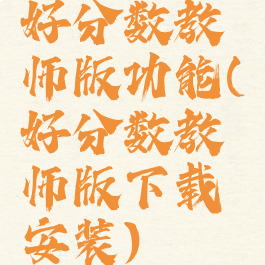 好分数教
师版功能(
好分数教
师版下载
安装)